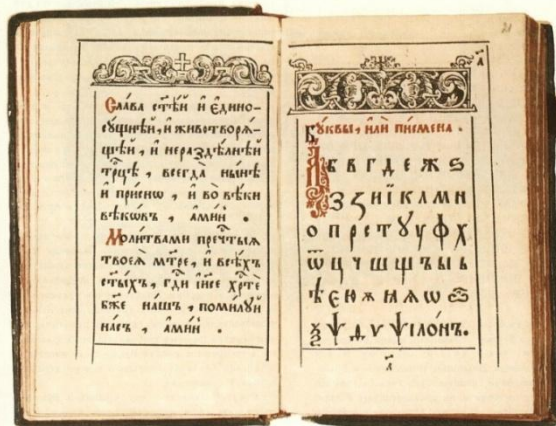 Сла́ва ст҃ѣ́й и҆ є҆дино-
сꙋ́щнѣй, и҆ животворѧ́-
щѣй, и҆ нераздѣ́лнѣй
трⷪ҇цѣ, всегда̀ ны́нѣ
и҆ при́снѡ, и҆ во вѣ́ки
вѣкѡ́въ, а҆ми́нь.
Моли́твами пречⷭ҇тыѧ
твоеѧ̀ мт҃ре, и҆ всѣ́хъ
ст҃ы́хъ, гдⷭ҇и і҆и҃се хрⷭ҇тѐ
бж҃е на́шъ, поми́лꙋй
на́съ, а҆ми́нь.
21
а҃
Бꙋ́квы, и҆лѝ пи́смена.
А Б В Г Д Е Ж Ѕ
З Ꙁ И Ї К Л М Н
О П Р С Т Ѹ Ꙋ Ф Х
Ѿ Ц Ч Ш Щ Ъ Ы Ь
Ѣ Є Ю Ѫ Ѧ Ѡ
Ѯ Ѱ Ѳ Ѵ